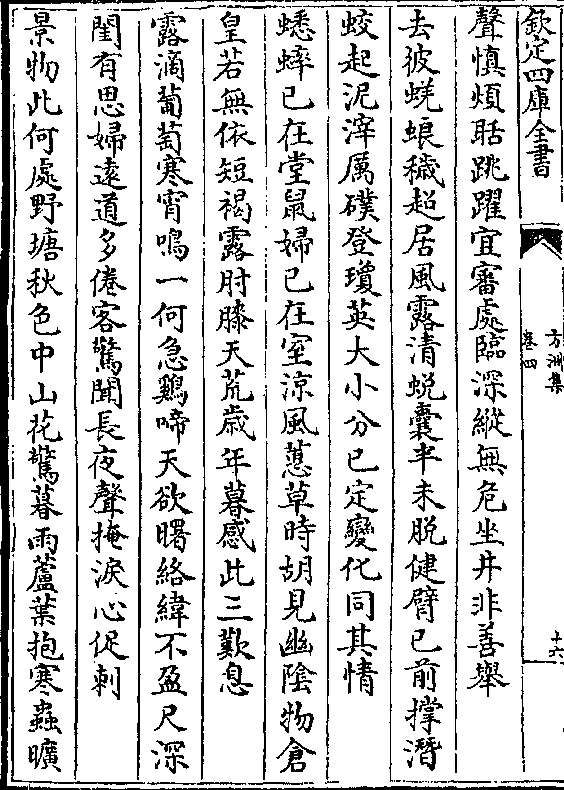 欽定四庫全書
方洲集
卷四
十六
聲慎煩聒跳躍宜審處臨深縱無危坐井非善舉
去彼蜣蜋穢超居風露清蛻囊半未脱健臂已前撑潛
蛟起泥滓厲磺登瓊英大小分已定變化同其情
蟋蟀已在堂鼠婦已在室涼風蕙草時胡見幽陰物倉
皇若無依短褐露肘膝天荒歳年暮感此三歎息
露滴葡萄寒宵鳴一何急鷄啼天欲曙絡緯不盈尺深
閨有思婦逺道多倦客驚聞長夜聲掩淚心促刺
景物此何處野塘秋色中山花驚暮雨蘆葉抱寒蟲曠